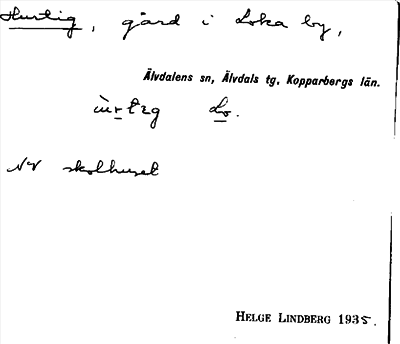 Hurtig, gård i Loka by,
Älvdalens sn, Älvdals tg, Kopparbergs län.
ùrtɩg Lo.
NV skolhuset
HELGE LINDBERG 1935.